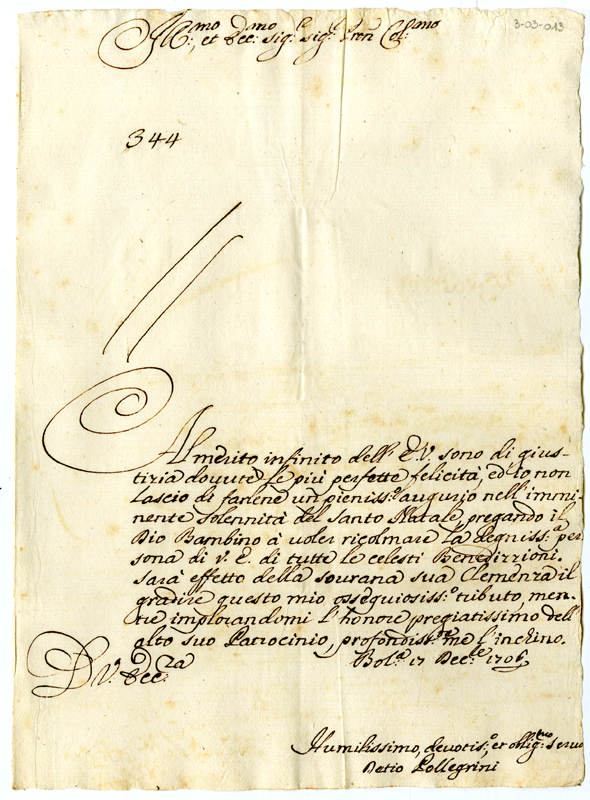 Ill:mo, et Ecc:mo Sig:re Sig:re Pron Col:mo
3-03-013
344
Al merito infinito dell' E.V. sono di gius-
tizia dovute le più perfette felicità, ed io non
lascio di farlene un pieniss:o augurio nell' immi-
nente Solennità del Santo Natale pregando il
Dio Bambino à voler ricolmare la degniss:a per
sona di V. E. di tutte le celesti Benedizzioni.
Sarà effetto della sourana sua Clemenza il
gradire questo mio ossequiosiss:o tributo, men-
tre implorandomi l'honore pregiatissimo dell'
alto suo Patrocinio, profondiss:te me l'inchino.
D V. Ecc:za
Bol:a 17 Dec:re 1706
Humilissimo, devotis:o, et obblig:mo servo
Detio Pellegrini